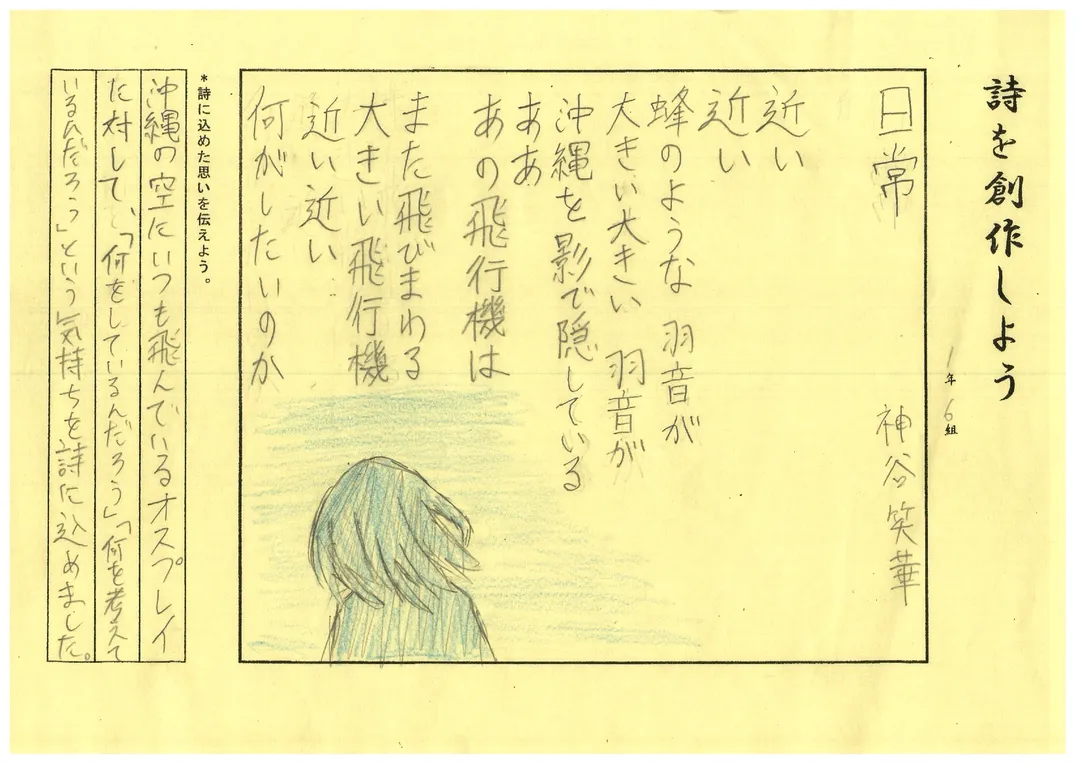 詩を創作しよう
1年 6組
日常 神谷笑華
近い
近い
蜂のような 羽音が
大きい大きい 羽音が
沖縄を影で隠している
ああ
あの飛行機は
また飛びまわる
大きい飛行機
近い近い
何がしたいのか
*詩に込めた思いを伝えよう。
沖縄の空にいつも飛んでいるオスプレイ
に対して、「何をしているんだろう」「何を考えて
いるんだろう」という気持ちを詩に込めました。